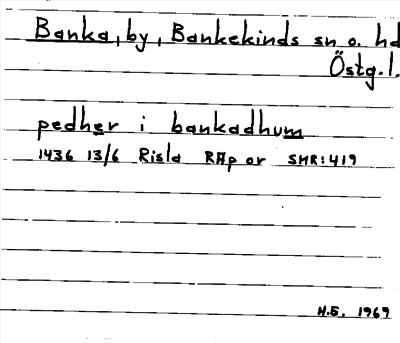 Banka, by, Bankekinds sn o. hd
Östg.l.
pedher i bankadhum
1436 13/6 Risla RAp or SMR:419
H.S. 1969